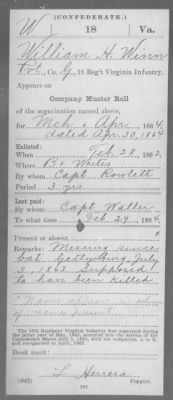 (CONFEDERATE.)
W 18 Va.
William H. Winn
Pvt., Co. G, 18 Reg't Virginia Infantry.
Appears on
Company Muster Roll
of the organization named above,
for Mch & Apr, 1864.
Dated Apr. 30, 1864
Enlisted:
When Feb. 28, 1862.
Where
By whom Capt. Rowlett
Period 3 yrs
Last paid:
By whom Capt. Walter
To what time Feb. 29, 1864.
Present or absent
Remarks: Missing since
bat. Gettysburg, July
3, 1863. Supposed
to have been killed
*Name appears in column
of names present.
The 18th Regiment Virginia Infantry was organized during the
Confederate States July 1, 1861, with ten companies, A to K,
and reorganized in April, 1862.
Book mark:
L. Herrera
(642) Copyist.